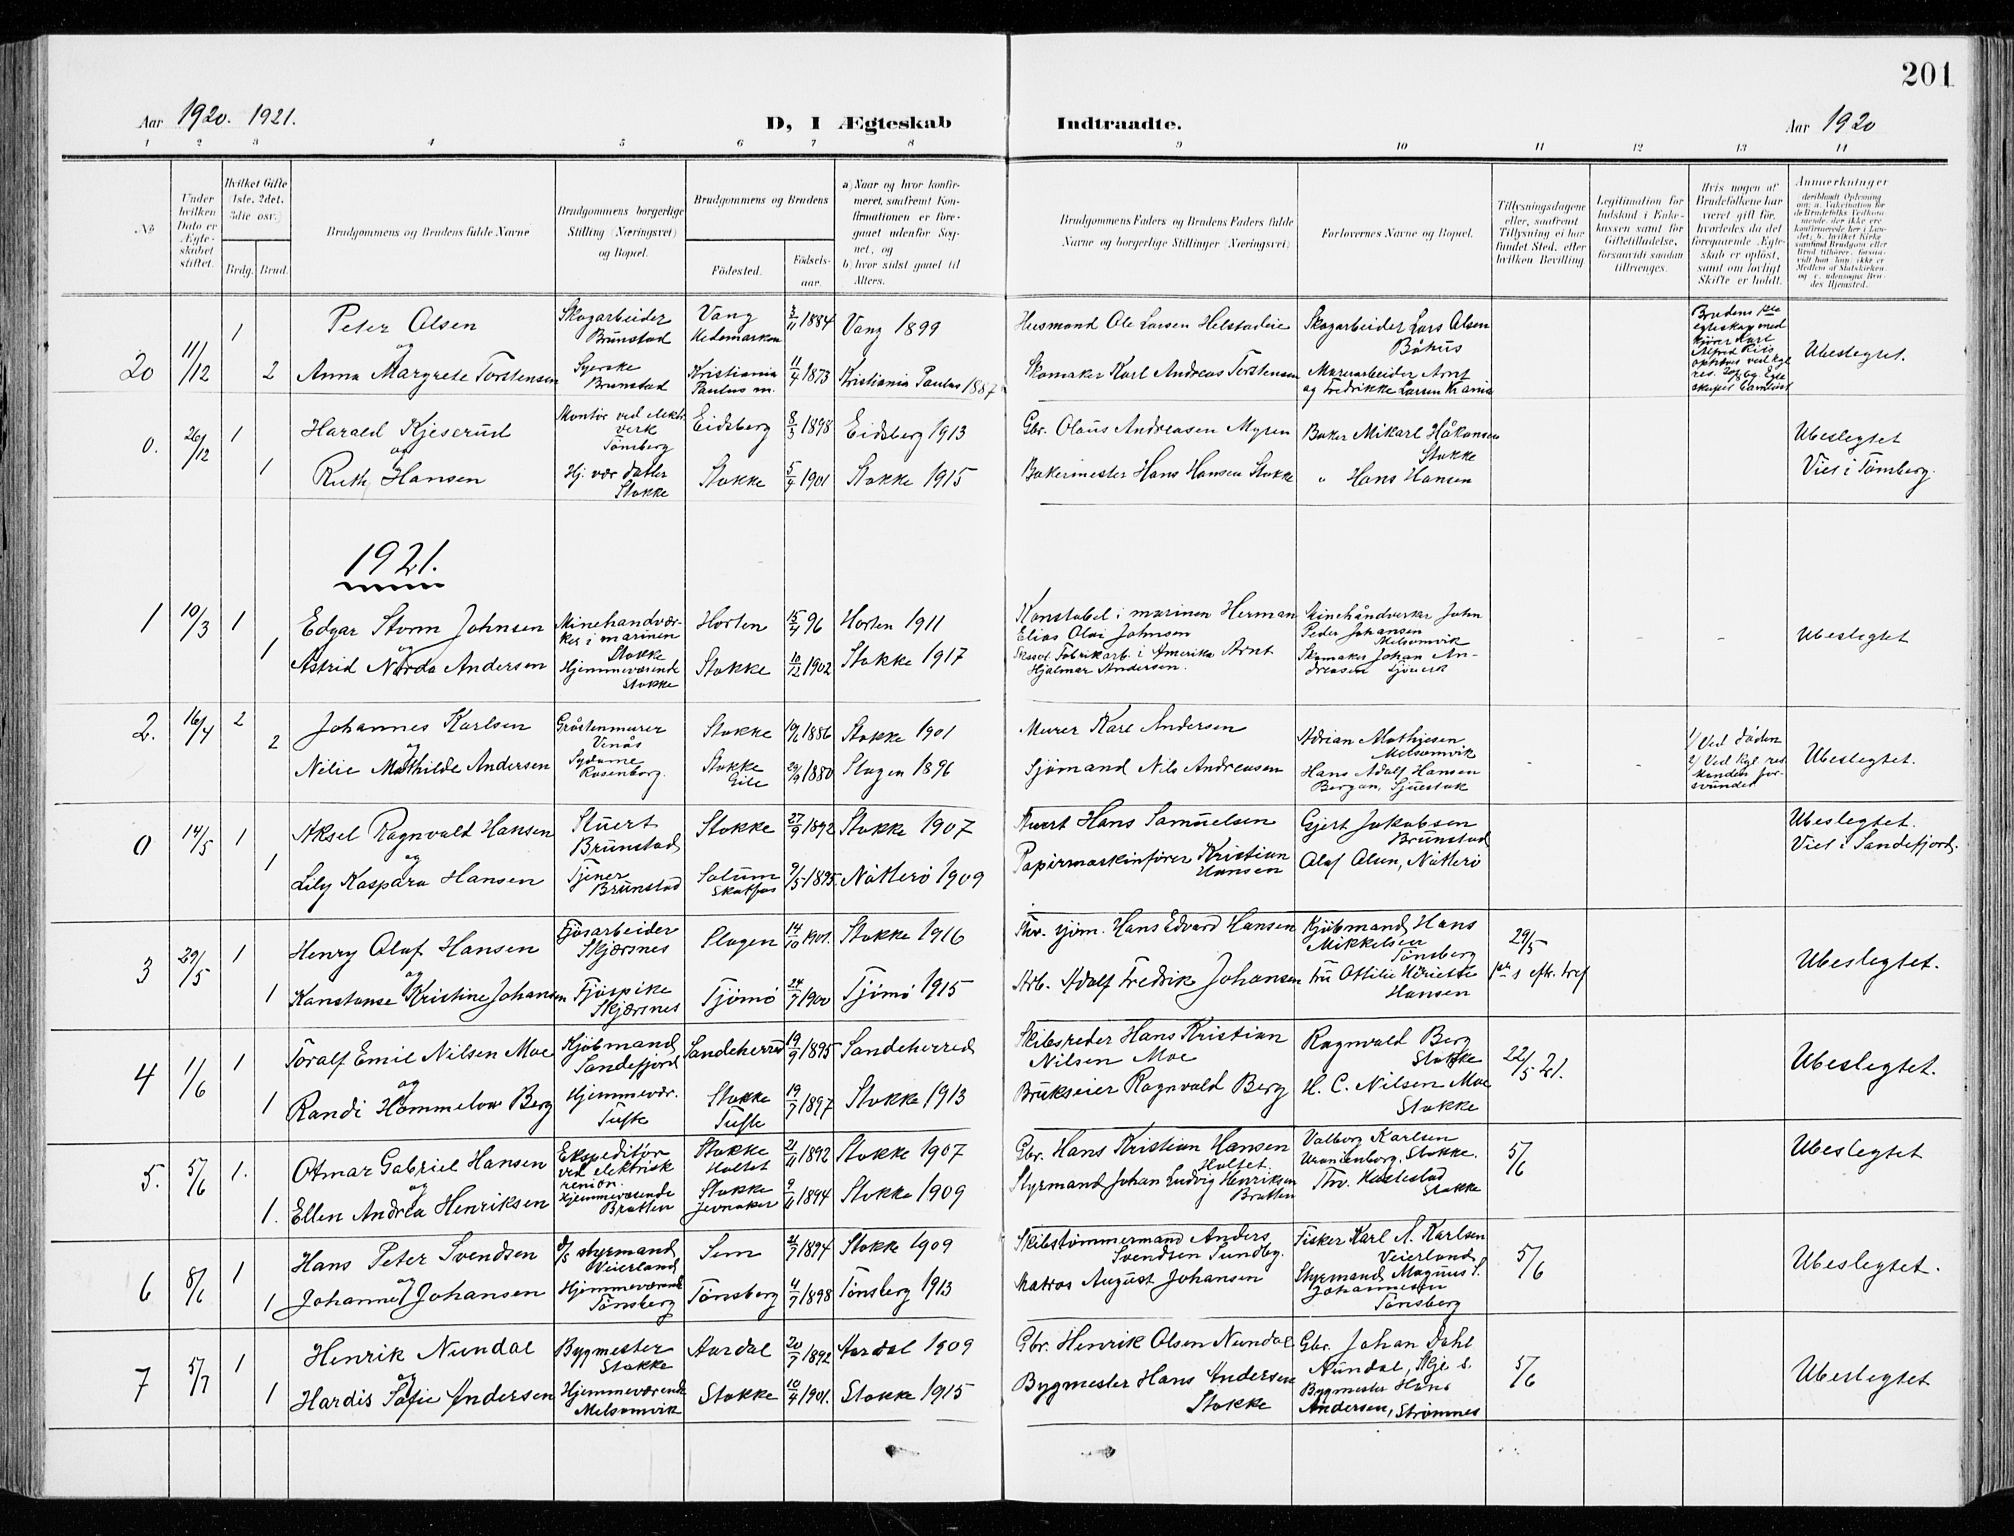 201
Aar 1920. 1921. D, I Ægteskab Indtraadte. Aar 1920
1 2 3 4 5 6 7 8 9 10 11 12 13 14
No
Under hvilken Dato er Ægteskabet stiftet.
Hvilket Gifte (1ste, 2det, 3die osv.)
Brdg. Brud.
Brudgommens og Brudens fulde Navne
Brudgommens borgerlige Stilling (Næringsvei) og Bopæl.
Brudgommens og Brudens
Fødested. Fødselsaar.
a) Naar og hvor konfirmeret, saafremt Konfirmationen er foregaaet udenfor Sognet, og
b) hvor sidst gaaet til Alters.
Brudgommens Faders og Brudens Faders fulde Navne og borgerlige Stillinger (Næringsvei)
Forlovernes Navne og Bopæl.
Tillysningsdagene eller, saafremt Tillysning ei har fundet Sted, efter hvilken Bevilling
Legitimation for Indskud i Enkekassen samt for Giftetilladelse, forsaavidt saadan tiltrænges.
Hvis nogen af Brudefolkene har været gift før, hvorledes da det foregaaende Ægteskab er opløst, samt om lovligt Skifte er holdt.
Anmerkninger
20 11/12 1 Peter Olsen Skogarbeider Brunstad Vang Hedemarken 3/11 1884 Vang 1899 Husmand Ole Larsen Helstadeie Skogarbeider Lars Olsen Böhus
og
2 Anna Margrete Torstensen Syerske Brunstad Kristiania Paulus m. 11/4 1873 Kristiania Paulus 1887 Skomaker Karl Andreas Torstensen Murerarbeider Arnt og Fredrikke Larsen Krania Ubeslegtet.
0. 26/12 1 Harald Kjeserud Montør ved elektr. verk Tønsberg Eidsberg 8/3 1898 Eidsberg 1913 Gbr. Olaus Andreasen Myren Baker Mikael Håkonsen Stokke Ubeslegtet
og
1 Ruth Hansen Hj. vær. datter Stokke Stokke 5/9 1901 Stokke 1915 Bakermester Hans Hansen Stokke " Hans Hansen Viet i Tønsberg.
1921.
1 10/3 1 Edgar Storm Johnsen Minehandværker i marinen Stokke Horten 15/4 96 Horten 1911 Konstabel i marinen Herman Elias Olai Johnsen Minehåndverker John Peder Johansen Melsomvik - - - Ubeslegtet
og
1 Astrid Norda Andersen Hjemmeværende Stokke Stokke 10/12 1902 Stokke 1917 Fabrikarb. i Amerika Arnt Hjalmar Andersen. Skomaker Johan Andreasen
2. 16/4 2 Johannes Karlsen Gråstenmurer Venås Stokke 19/6 1886 Stokke 1901 Murer Karl Andersen Adrian Mathisen Melsomvik - - 1/ Ved døden
og
2 Nilie Mathilde Andersen Sydame Rosenborg. Stokke Gile 29/9 1880 Slagen 1896 Sjömand Nils Andreasen Hans Adolf Hansen Bergan, 2/ Ved kgl. res. Manden forsvundet Ubeslegtet.
0 14/5 1 Aksel Ragnvald Hansen Stuert Brunstad Stokke 27/9 1892 Stokke 1907 Stuert Hans Samuelsen Gjert Jakobsen Brunstad Ubeslegtet.
og
1 Lily Kaspara Hansen Tjener Brunstad Solum Skotfos 9/5 1895 Nøtterø 1909 Papirmaskinfører Kristian Hansen Olaf Olsen, Nøtterø Viet i Sandefjord.
3 29/5 1 Henry Olaf Hansen Fjøsarbeider Skjærsnes Slagen 14/10 1901. Stokke 1916 Hans Edvard Hansen Kjöbmand Hans Mikkelsen Tønsberg 29/5
og
1 Konstanse Kristine Johansen Fjöspike Skjærsnes Tjömö 24/7 1900 Tjömö 1915 Arb. Adolf Fredrik Johansen Fru Ottilie Hansen Ubeslegtet.
4 1/6 1 Toralf Emil Nilsen Moe Kjöbmand Sandefjord Sandeherred 19/9 1895 Sandeherred Skibsreder Hans Kristian Nilsen Moe Ragnvald Berg Stokke 22/5 21. Ubeslegtet.
og
1 Randi Hommelow Berg Hjemmevær. Tufte Stokke Tufte 19/7 1897 Stokke 1913 Brukseier Ragnvald Berg H. C. Nilsen Moe Stokke
5. 5/6 1. Otmar Gabriel Hansen Ekspeditør ved elektrisk Stokke Holtet 21/11 1892 Stokke 1907 Gbr. Hans Kristian Hansen Holtet. Valborg Karlsen Uranienborg. Stokke. 5/6 Ubeslegtet
og
1. Ellen Andrea Henriksen Hjemmeværende Bratten Stokke Jevnaker 9/11 1894 Stokke 1909 Styrmand Johan Ludvig Henriksen Bratten Stokke
6 8/6 1 Hans Peter Svendsen d/s styrmand Veierland Sem 21/7 1894 Stokke 1909 Skibstømmermand Anders Svendsen Sundby. Fisker Karl A. Karlsen Veierland 5/6 Ubeslegtet.
og
1 Johanne Johansen Hjemmeværende Tönsberg Tönsberg 4/7 1898 Tönsberg 1913 Matros August Johansen Styrmand Magnus S. Johannesen Tönsberg
7 5/7 1 Henrik Nundal Bygmester Stokke Aardal 20/7 1892 Aardal 1909 Gbr. Henrik Olsen Nundal Gbr. Johan Dahl Nundal, 5/6 Ubeslegtet
og
1 Hardis Sofie Andersen Hjemmeværende Melsomvik Stokke 10/4 1901. Stokke 1915 Bygmester Hans Andersen Stokke Bygmester Hans Andersen, Strømnes